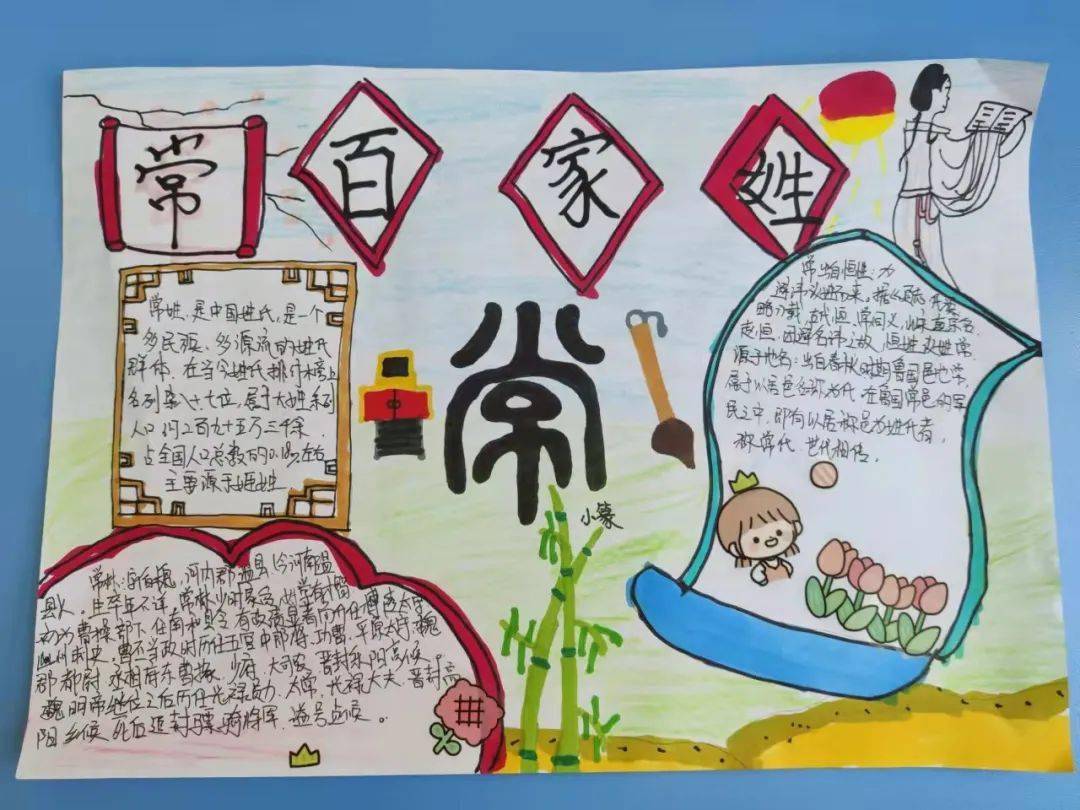 常百家姓
常姓，是中国姓氏，是一个
多民族、多源流的姓氏
群体，在当今姓氏排行榜上
名列第八十七位，属于大姓系列
人口约二百九十五万三千余，
占全国人口总数的0.18%左右
主要源于姬姓
常
小篆
常出自恒姓：为
避讳改姓而来，据
略》载，古代恒、常同义，
恒，因避名讳之故，恒姓改姓常。
源于地名：出自春秋时期鲁国邑地常，
属于以居邑名称为代，在鲁国常邑的军
民之中，即有以居称邑为姓代者，
称常代，世代相传。
常林：字伯槐，河内郡温县(今河南温
县人。生卒年不详，常林少时
幼为曹操部下，任南和县令，有政
州刺史，曹丕当政时历任五官中郎将，功曹，平原太守，魏
郡都尉，丞相府东曹掾，少府，大司农，晋封乐阳亭侯。
魏明帝继位之后历任光禄勋，太常，光禄大夫，晋封高
阳乡侯，死后追封骠骑将军，谥号贞侯。